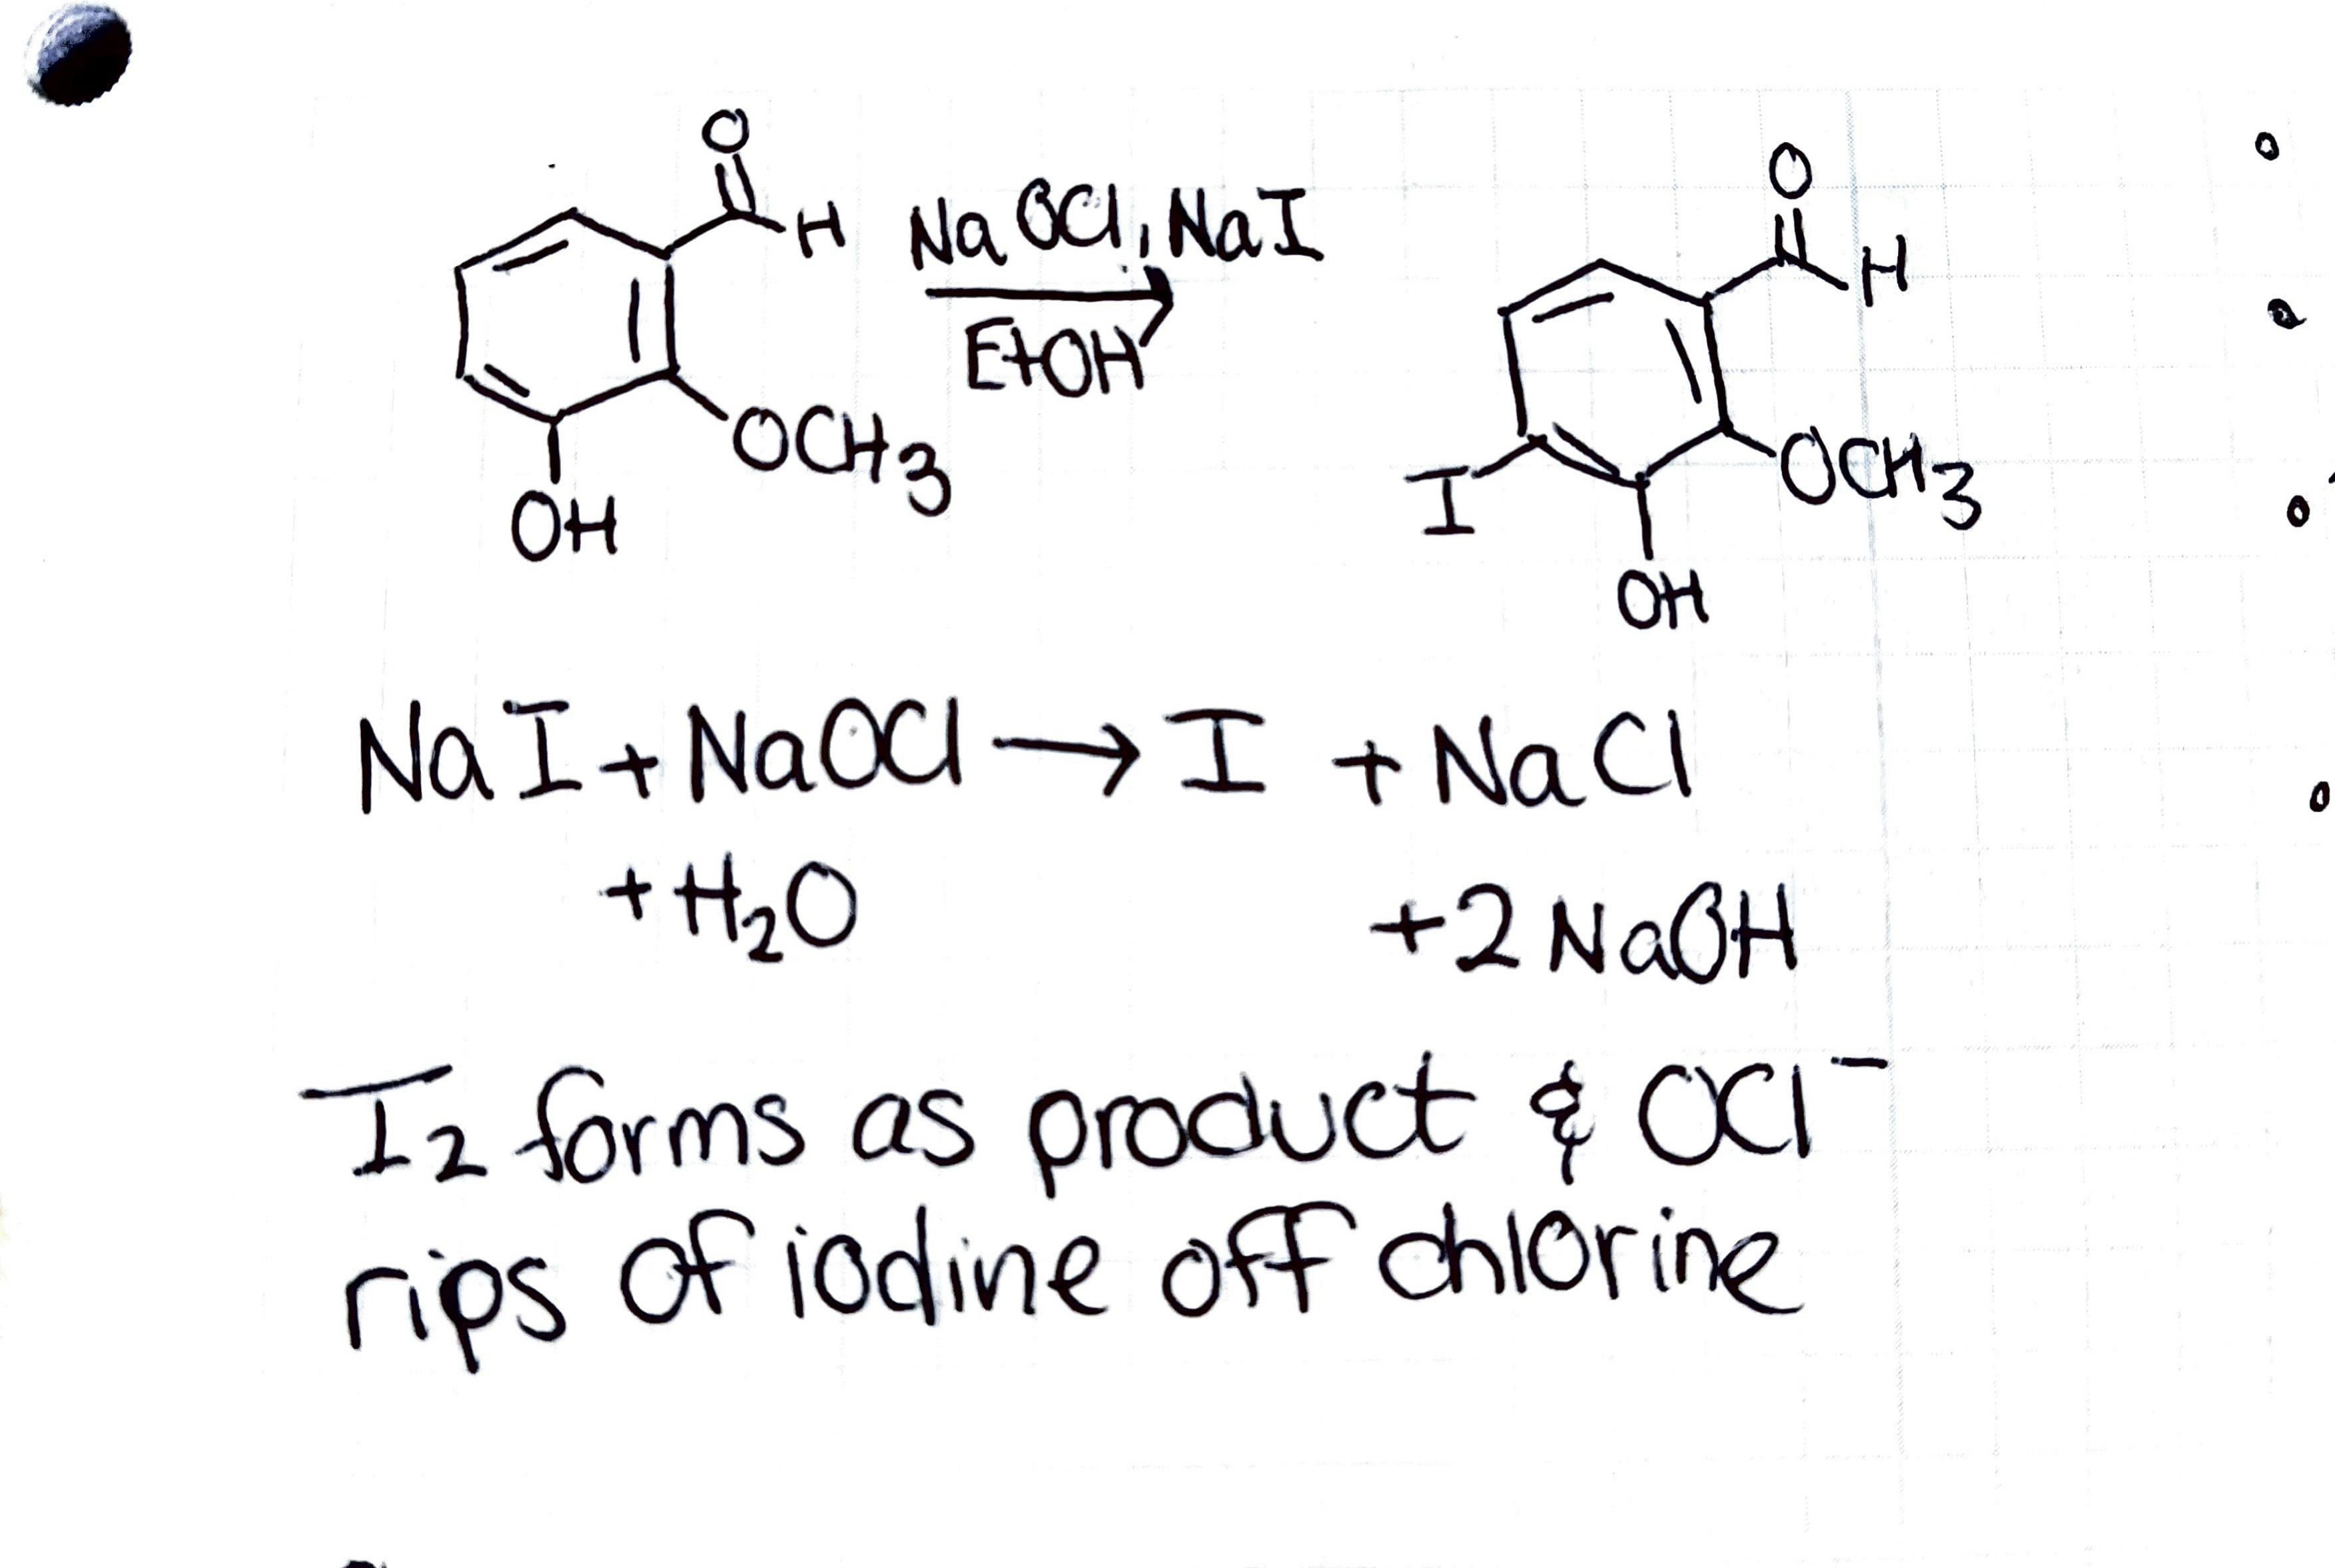 O
H
NaOCl, NaI
EtOH
OCH3
OH
O
H
I
OCH3
OH
NaI + NaOCl → I + NaCl
+ H2O + 2 NaOH
I2 forms as product & OCl⁻
rips of iodine off chlorine